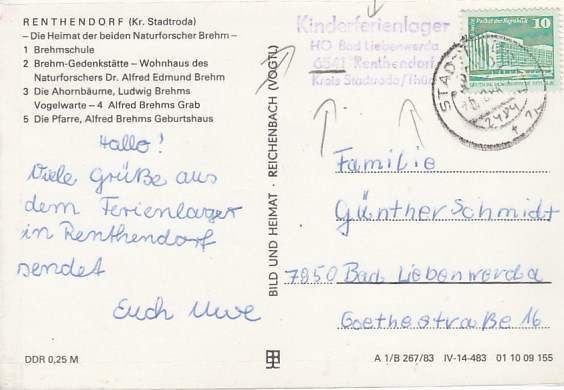 RENTHENDORF (Kr. Stadtroda)
—Die Heimat der beiden Naturforscher Brehm—
1 Brehmschule
2 Brehm-Gedenkstätte – Wohnhaus des
Naturforschers Dr. Alfred Edmund Brehm
3 Die Ahornbäume, Ludwig Brehms
Vogelwarte – 4 Alfred Brehms Grab
5 Die Pfarre, Alfred Brehms Geburtshaus
Hallo!
Viele Grüße aus
dem Ferienlager
in Renthendorf
sendet
Euch Uwe
DDR 0,25 M
BILD UND HEIMAT · REICHENBACH (VOGTL)
Kinderferienlager
HO Bad Liebenwerda
6541 Renthendorf
Kreis Stadtroda/Thür
Palast der Republik 10
STADT
Familie
Günther Schmidt
7950 Bad Liebenwerda
Goethestraße 16
A 1/B 267/83 IV-14-483 01 10 09 155